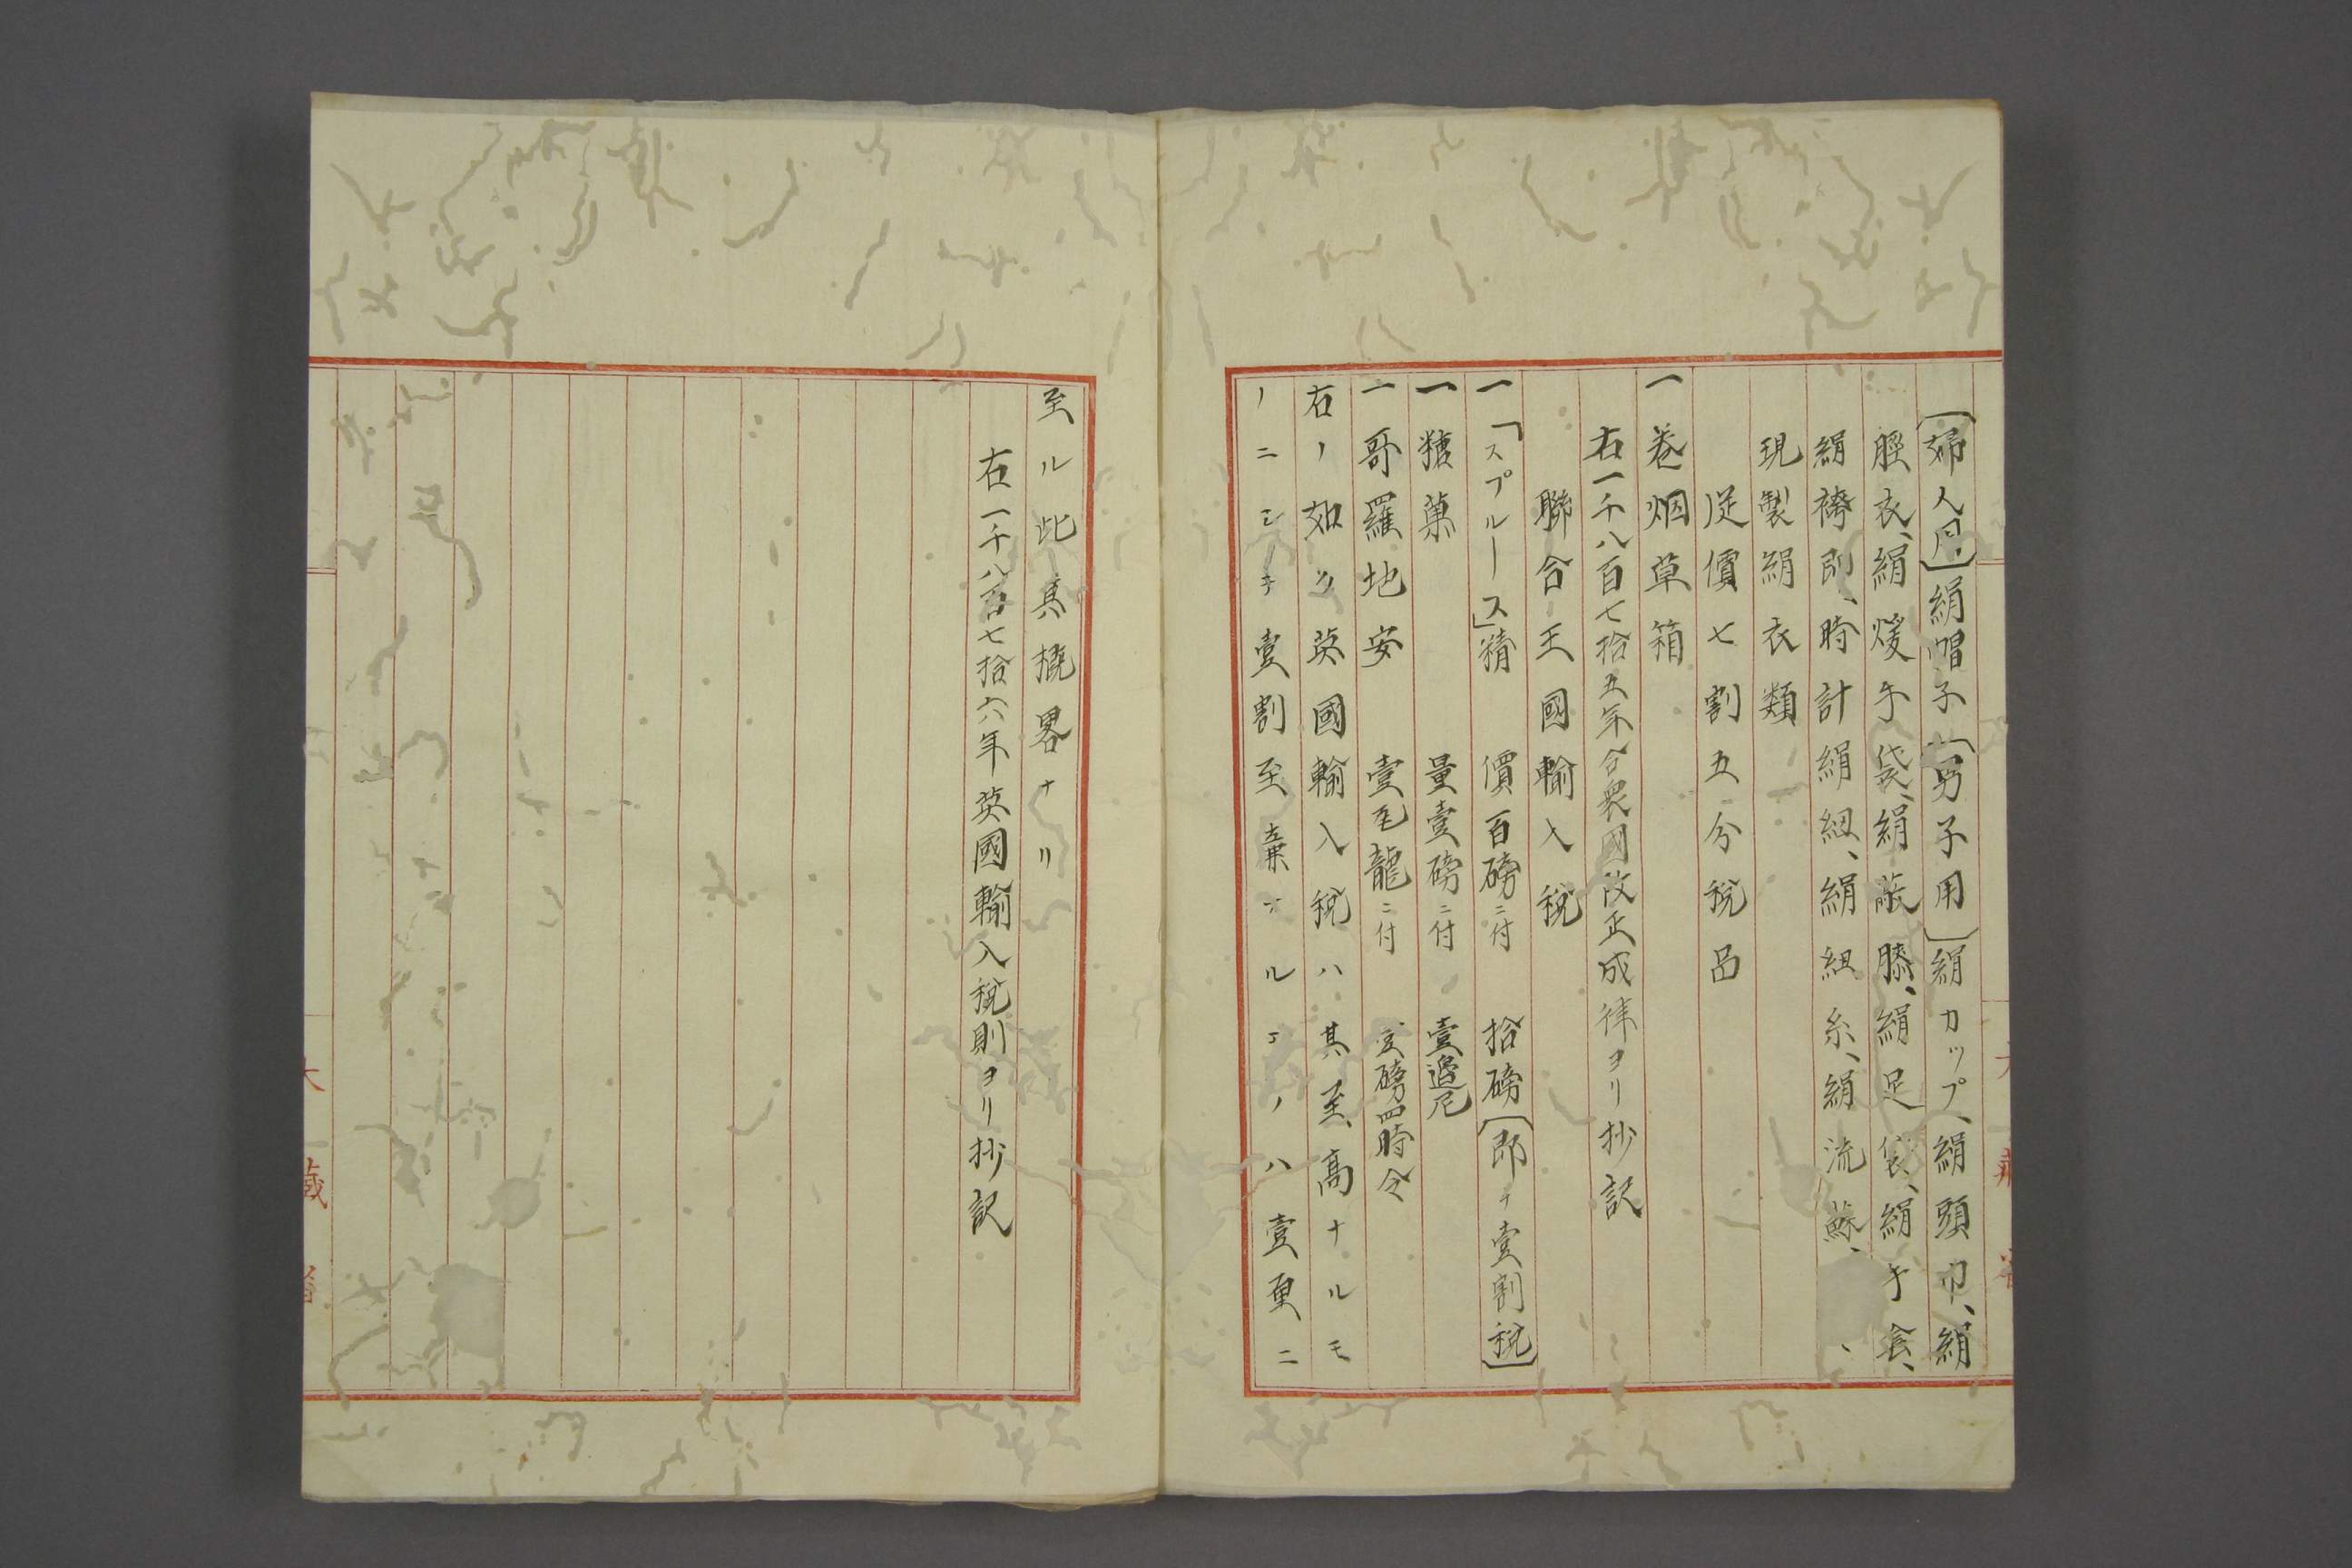 〔婦人用〕絹帽子〔男子用〕絹カップ、絹頭巾、絹
脛衣、絹煖手袋、絹蔽膝、絹足袋、絹手套、
絹袴即、時計絹紐、絹組糸、絹流蘇、
現製絹衣類
従價七割五分税品
一巻烟草箱
右一千八百七拾五年合衆國改正成律ヨリ抄訳
聯合王國輸入税
一「スプルース」精　價百磅ニ付　拾磅〔即チ壹割税〕
一糖菓　量壹磅ニ付　壹邊尼
一哥羅地安　壹瓦龍ニ付　壹磅四時令
右ノ如ク英國輸入税ハ其至高ナルモ
ノニシテ壹割至廉ナルモノハ壹厘ニ
至ル此其概畧ナリ
右一千八百七拾六年英國輸入税則ヨリ抄訳
大藏省